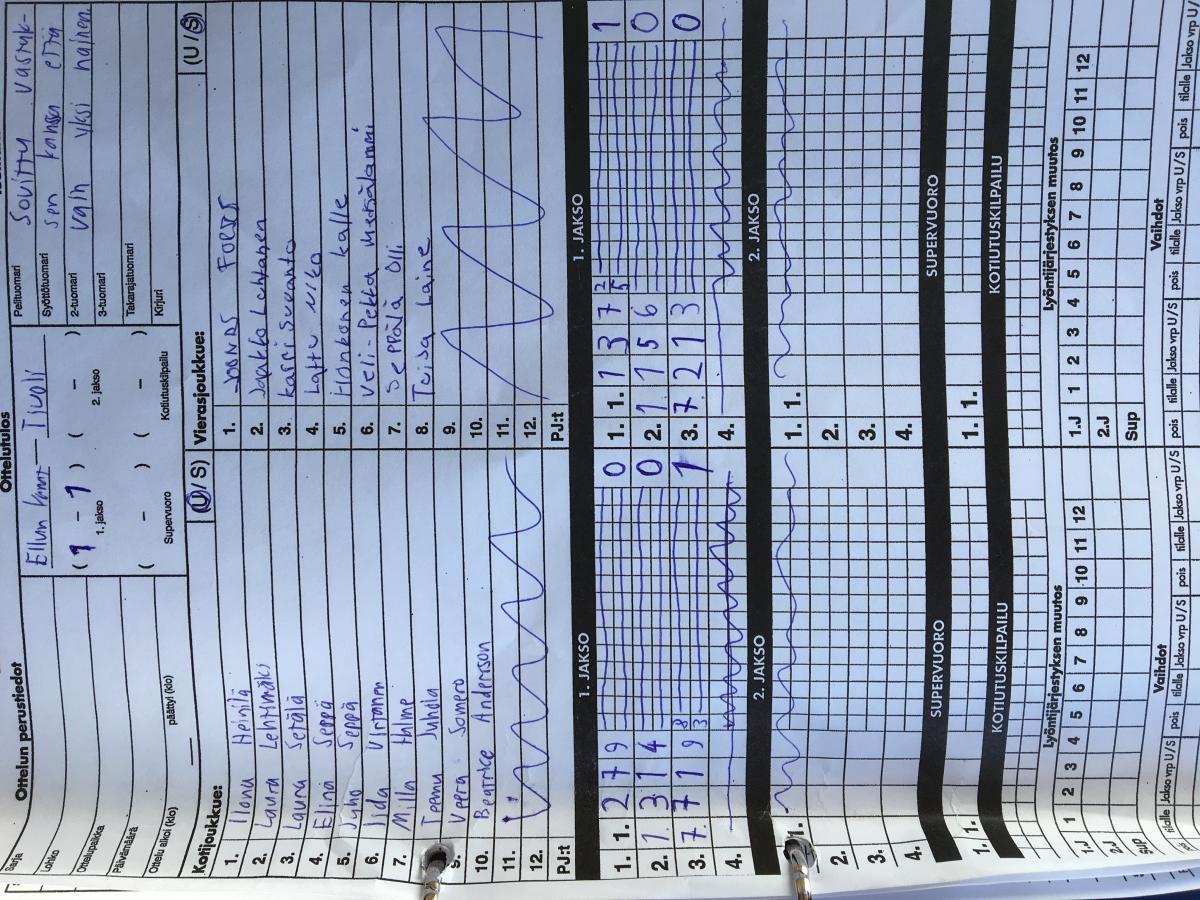 Ottelun perustiedot
Sarja
Lohko
Ottelupaikka
Päivämäärä
Ottelu alkoi (klo)
päättyi (klo)
Ottelutulos
Ellun — Tivoli
( 1 – 1 ) ( – )
1. jakso 2. jakso
( – ) ( – )
Supervuoro Kotiutuskilpailu
Pelituomari
Syöttötuomari
2-tuomari
3-tuomari
Takarajatuomari
Kirjuri
Sovittu vastak-
sen kanssa että
vain yksi nainen.
Kotijoukkue: (U/S)
1. Ilona Heinilä
2. Laura Lehtimäki
3. Laura Setälä
4. Elina Seppä
5. Juho Seppä
6. Iida Virtanen
7. Milla Halme
8. Teemu Juhola
9. Veera Somero
10. Beatrice Andersson
11.
12.
PJ:t
Vierasjoukkue: (U/S)
1. Joonas
2. Jaakko Lahtanen
3. Karri Suvanto
4. Lattu Niko
5. Honkonen Kalle
6. Veli-Pekka Metsälammi
7. Seppälä Olli
8. Tuija Laine
9.
10.
11.
12.
PJ:t
1. JAKSO
1. 1. 2 7 9 0
2. 1. 3 1 4 0
3. 7. 7 1 9 8 3 1
4.
1. JAKSO
1. 1. 1 3 7 2 5 1
2. 1. 1 5 6 0
3. 7. 2 1 3 0
4.
2. JAKSO
1. 1.
2.
3.
4.
2. JAKSO
1. 1.
2.
3.
4.
SUPERVUORO
1. 1.
SUPERVUORO
1. 1.
KOTIUTUSKILPAILU
KOTIUTUSKILPAILU
Lyöntijärjestyksen muutos
1.J 1 2 3 4 5 6 7 8 9 10 11 12
2.J
Sup
Lyöntijärjestyksen muutos
1.J 1 2 3 4 5 6 7 8 9 10 11 12
2.J
Sup
Vaihdot
tilalle Jakso vrp U/S pois tilalle Jakso vrp U/S pois tilalle Jakso vrp U/S
Vaihdot
pois tilalle Jakso vrp U/S pois tilalle Jakso vrp U/S pois tilalle Jakso vrp U/S